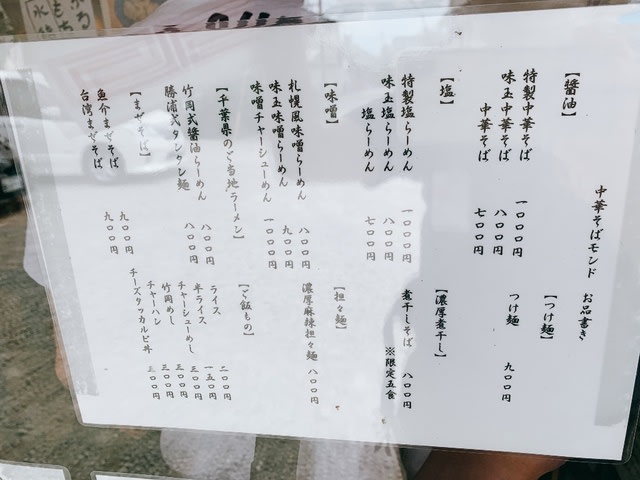 中華そばモンド　お品書き
【醤油】
特製中華そば　一〇〇〇円
味玉中華そば　八〇〇円
中華そば　七〇〇円
【塩】
特製塩らーめん　一〇〇〇円
味玉塩らーめん　八〇〇円
塩らーめん　七〇〇円
【味噌】
札幌風味噌らーめん　八〇〇円
味玉味噌らーめん　九〇〇円
味噌チャーシューめん　一〇〇〇円
【千葉県のご当地ラーメン】
竹岡式醤油らーめん　八〇〇円
勝浦式タンタン麺　八〇〇円
【まぜそば】
魚介まぜそば　九〇〇円
台湾まぜそば　九〇〇円
【つけ麺】
つけ麺　九〇〇円
【濃厚煮干し】
煮干しそば　八〇〇円
※限定五食
【担々麺】
濃厚麻辣担々麺　八〇〇円
【ご飯もの】
ライス　二〇〇円
半ライス　一五〇円
チャーシューめし　三〇〇円
竹岡めし　三〇〇円
チャーハン　三〇〇円
チーズタッカルビ丼　三〇〇円